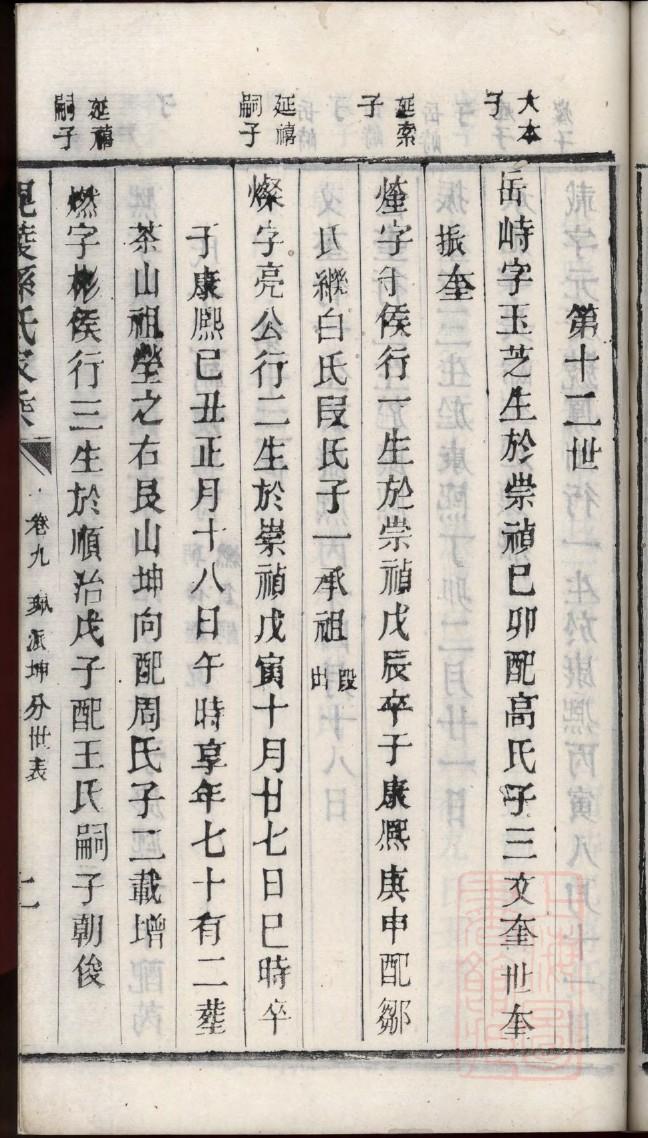 第十二世
大本子
岳峙字玉芝生於崇禎巳卯配高氏子三文奎世奎
振奎
延索子
熶字于侯行一生於崇禎戊辰卒于康熙庚申配鄒
氏繼白氏段氏子一承祖段出
延禧嗣子
燦字亮公行二生於崇禎戊寅十月廿七日巳時卒
于康熙巳丑正月十八日午時享年七十有二塟
茶山祖塋之右艮山坤向配周氏子二載增
延禧嗣子
燃字彬侯行三生於順治戊子配王氏嗣子朝俊
毘陵孫氏家乘
卷九
派坤分世表